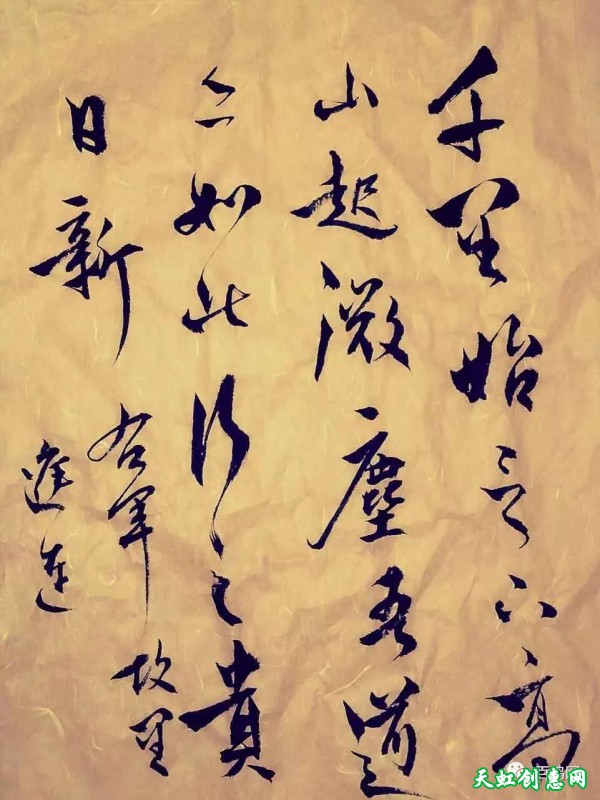 千里始足下高
山起微塵吾道
亦如此行之貴
日新
右軍故里
進
天虹创惠网